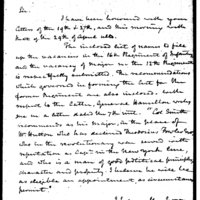 Sir.
I have been honored with your
letters of the 19th & 27th, and this morning with
that of the 29th of April ulto.
The inclosed list of names to fill
up the vacancies in the 16th Regiment of Infantry
and the vacancy of Major in the 15th Regiment
is respectfully submitted. The recommendations
which governed in forming the list for the
former Regiment are also inclosed: with
regard to the latter, General Hamilton only
in a letter dated the 7th inst. "Col Smith
recommends as his Major, in the place of
W Hutton who has declined Theodosius Fowler. He
was in the revolutionary war served with
reputation as Capt in the New York line,
and he is a man of good political principles
character and property. I believe he will be
as eligible an appointment, as circumstances
permit."